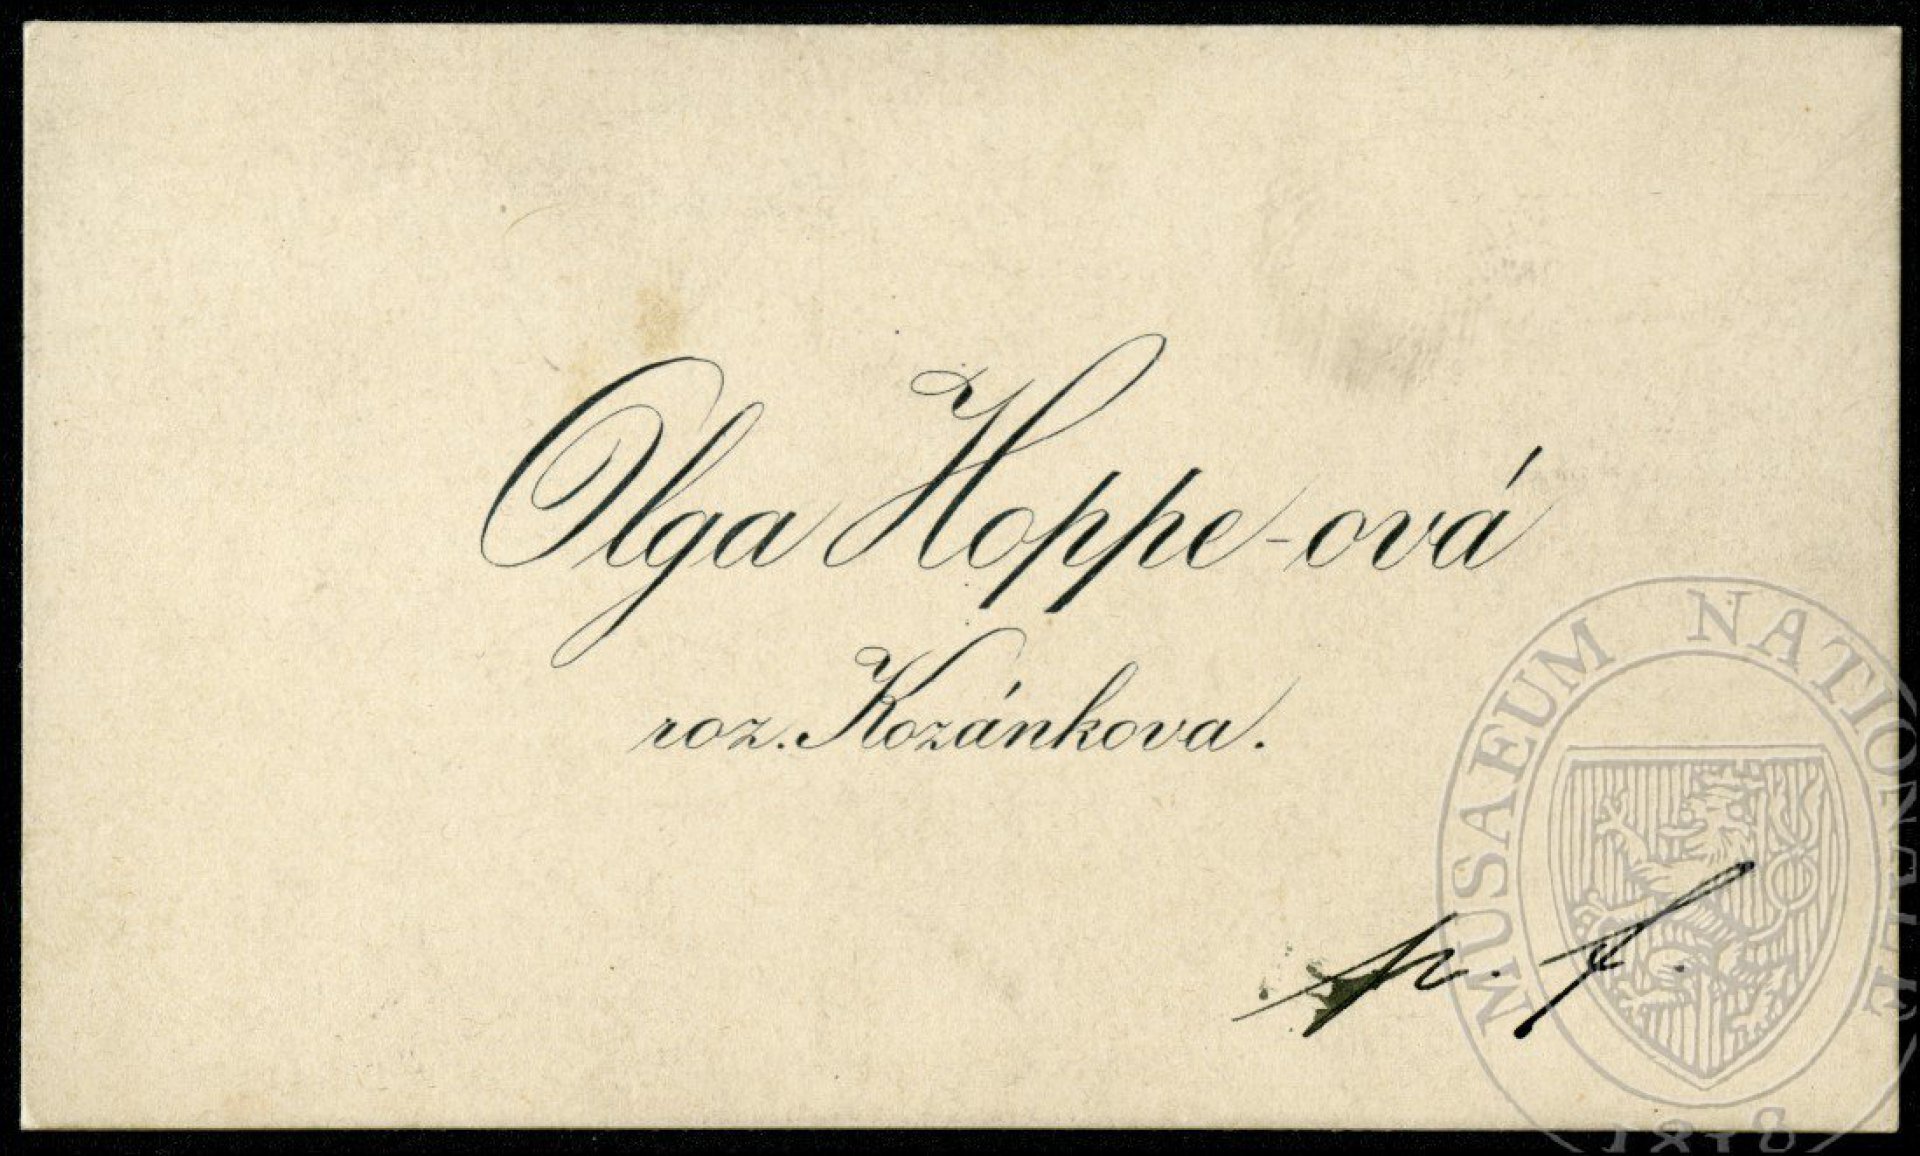 Olga Hoppe-ová
roz. Kozánkova.
p. f.
MUSAEUM NATIONALE
1818